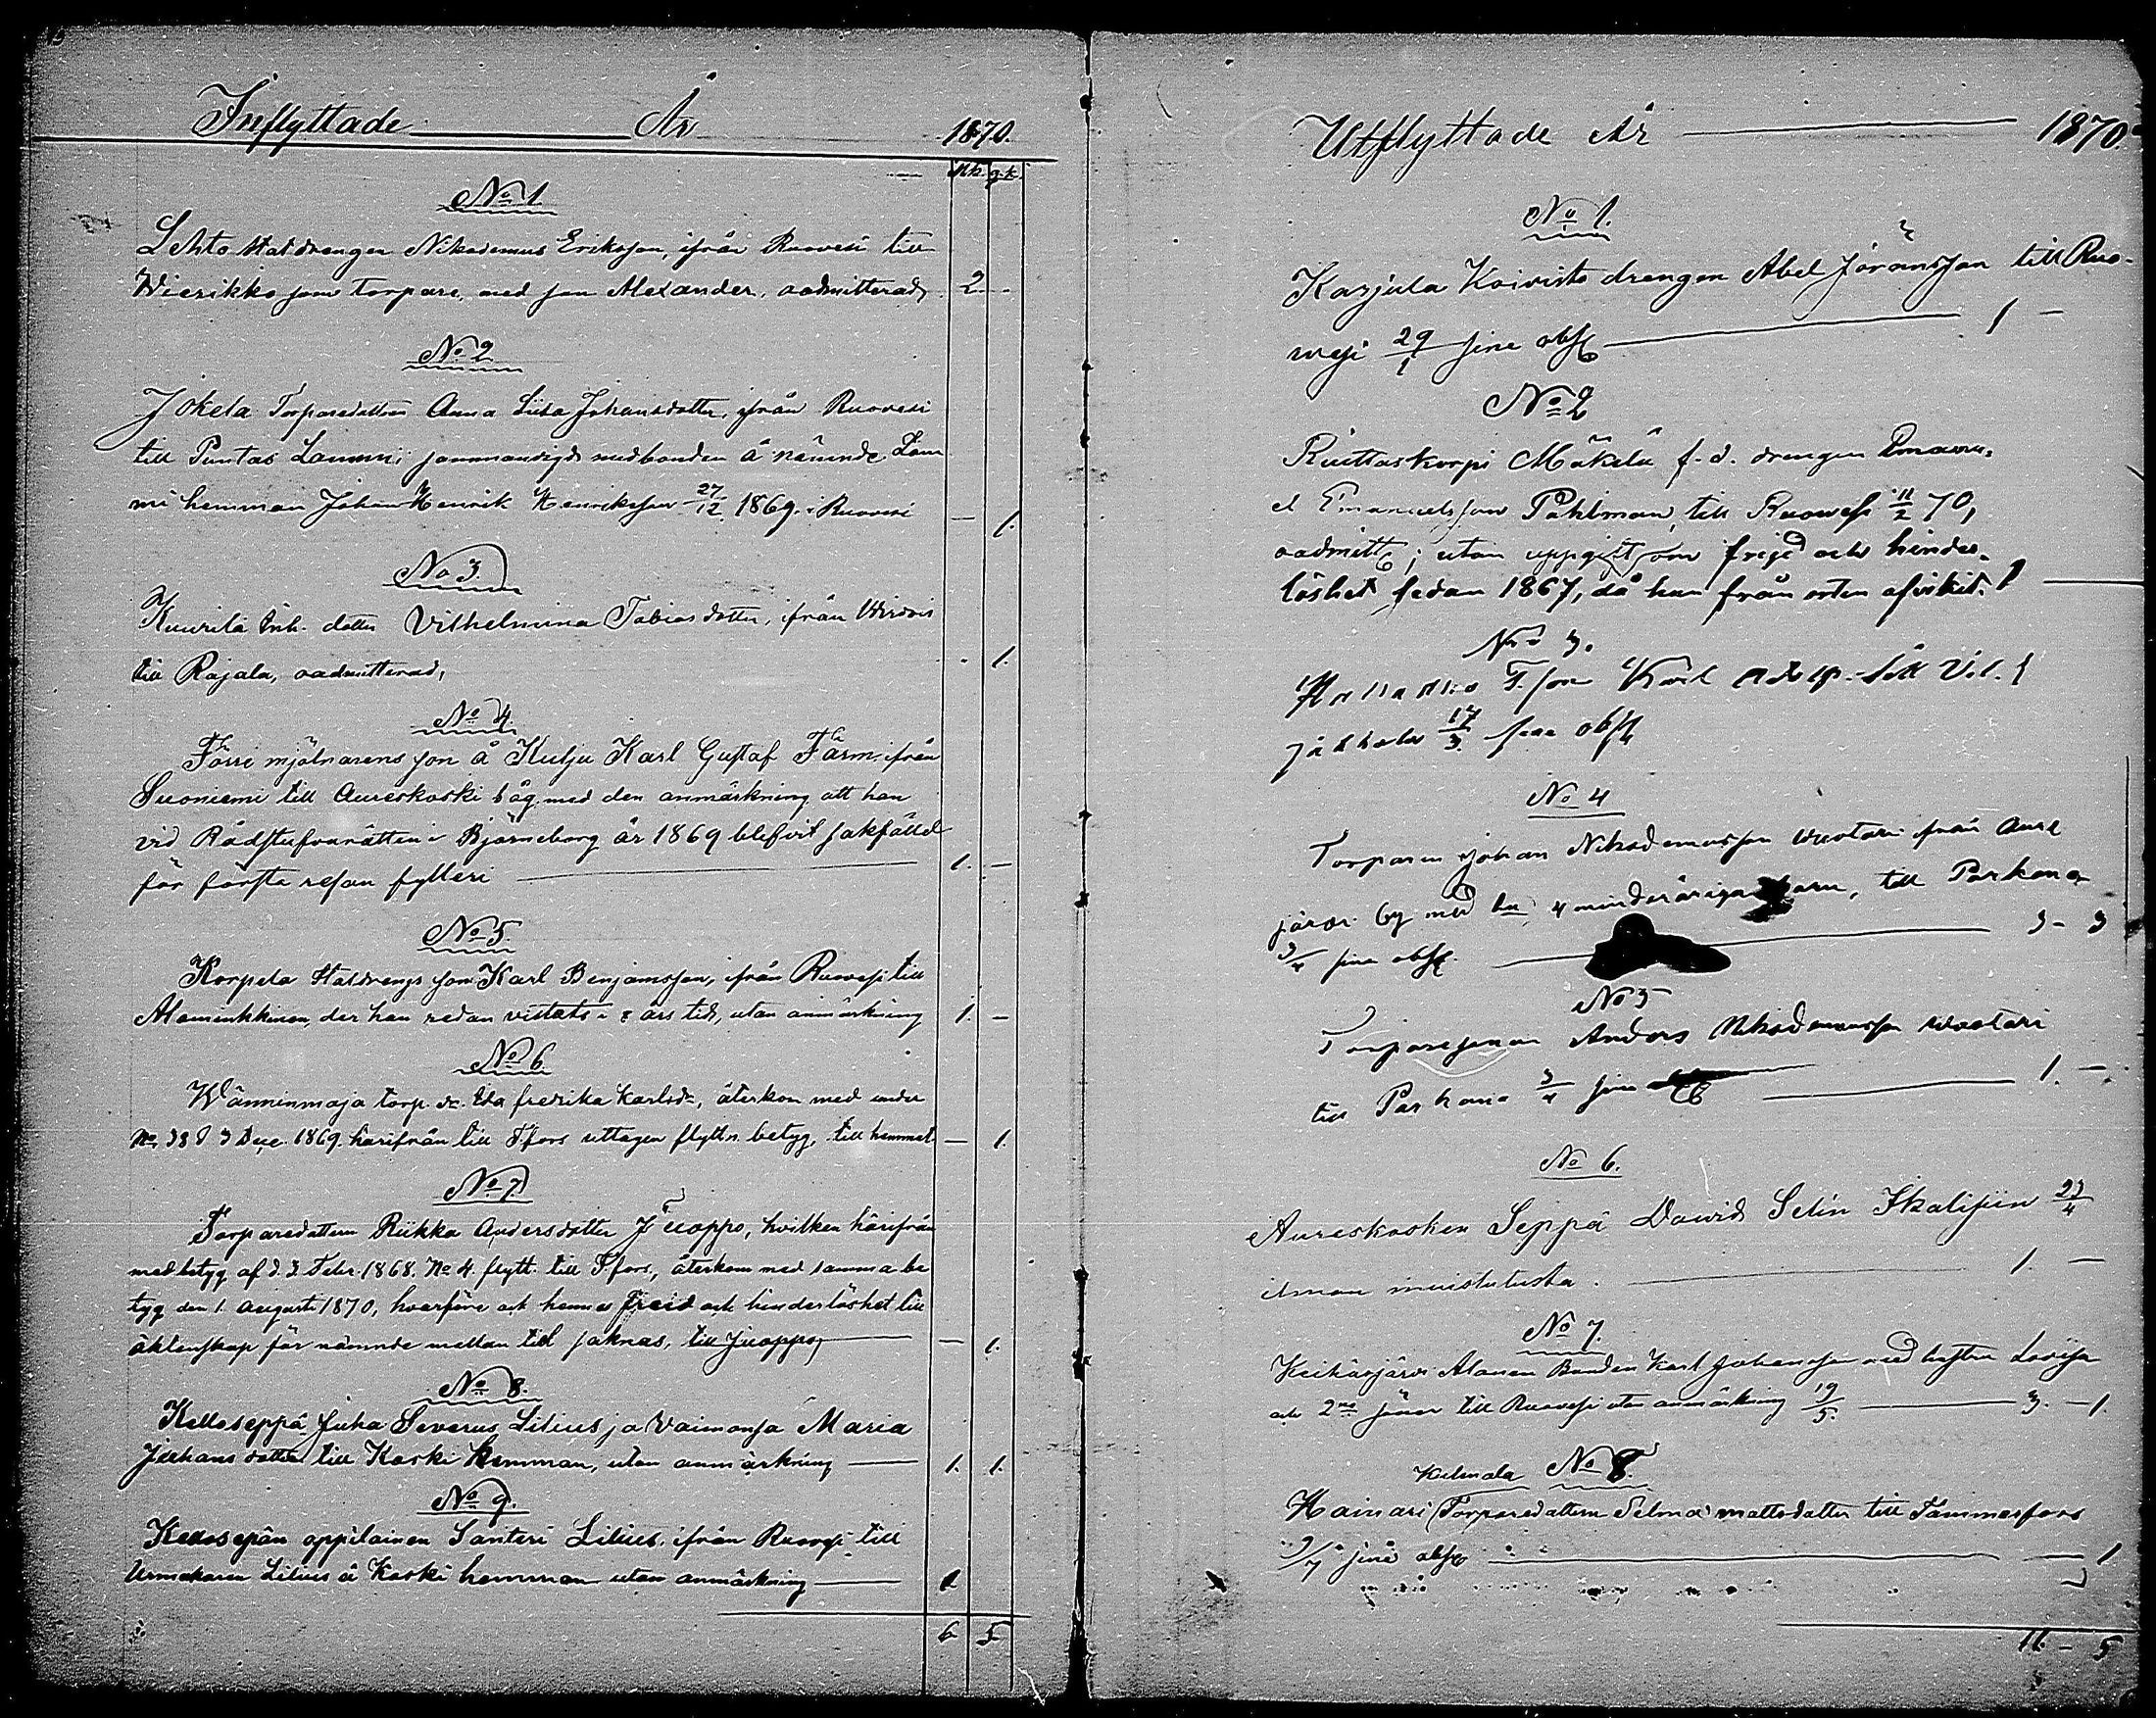 Inflyttade År 1870.
Mk. q.k.
No 1
Lehto Statdrengen Nikodemus Eriksson, ifrån Ruovesi till
Wierikko som torpare, med son Alexander, oadmitterad, 2. -
No 2
Jokela Torparedottren Anna Liisa Johansdotter, ifrån Ruovesi
till Puntas Lammi; sammanvigd med bonden å nämnde Lam
mi hemman Johan Henrik Henriksson 27/12 1869 i Ruovesi — 1.
No 3.
Kuurila Inh. dotter Vilhelmina Tobiasdotter, ifrån Wirdois
till Rajala, oadmitterad, - 1.
No 4.
Förre mjölnarens son å Kulju Karl Gustaf Färm, ifrån
Suoniemi till Aureskoski såg, med den anmärkning att han
vid Rådstufvurätten i Björneborg år 1869 blifvit sakfälld
för första resan fylleri 1. —
No 5.
Korpela Statdrengs son Karl Benjamsson, ifrån Ruovesi till
Alaminkkinen, der han redan vistats i års tid, utan anmärkning 1. —
No 6.
Wänninmaja torp. dr. Eva fredrika Karlsdr, återkom med under
No 38 d 3 Dec. 1869. härifrån till Tfors uttagen flyttn. betyg, till hemmet — 1.
No 7.
Torparedottren Riikka Andersdotter Juoppo, hvilken härifrån
med betyg af d. 3 Febr. 1868. No 4. flytt. till Tfors, återkom med samma be
tyg den 1. Augusti 1870, hvarföre ock hennes frejd och hinderlöshet till
äktenskap för nämnde mellan tid saknas, till Juoppo, — 1.
No 8.
Kelloseppä Juha Severus Lilius ja Vaimonsa Maria
Juhans dotter till Koski Hemman, utan anmärkning 1. 1.
No 9.
Kellosepän oppilainen Santeri Lilius, ifrån Ruovesi till
Urmakaren Lilius å Koski hemman utan anmärkning 1
6 5
Utflyttade År 1870.
No 1.
Karjula Koivisto drengen Abel Göransson till Ruo-
wesi 29/1 sine obs. 1 —
No 2
Riuttaskorpi Mäkelä f.d. drengen Emanu-
el Emanuelsson Pahlman, till Ruowesi 11/2 70,
oadmitt; utan uppgift om frejd och hinder-
löshet sedan 1867, då han från orten afvikit. 1 —
No 3.
T. son Karl Adolp. till
17/3 sine obs.
No 4
Torparen Johan Nikodemusson Wuotari från Aure
järvi by med hu, 4 minderåriga barn, till Parkano
3/4 sine obs. 3 - 3
No 5
Torparesonen Anders Nikodemusson Wuotari
till Parkano 3/4 sine 1. —
No 6.
Aureskosken Seppä Dawid Selin Ikalisiin 23/4
ilman muistutusta. 1. —
No 7.
Keihäsjärvi Alanen Bonden Karl Johansson med hustru Lovisa
och 2ne söner till Ruovesi utan anmärkning 19/5. 3. — 1.
No 8.
Kulmala
Hainari (Torparedottern Selma Mattsdotter till Tammerfors
9/7 sine obs. — 1.
11 — 5